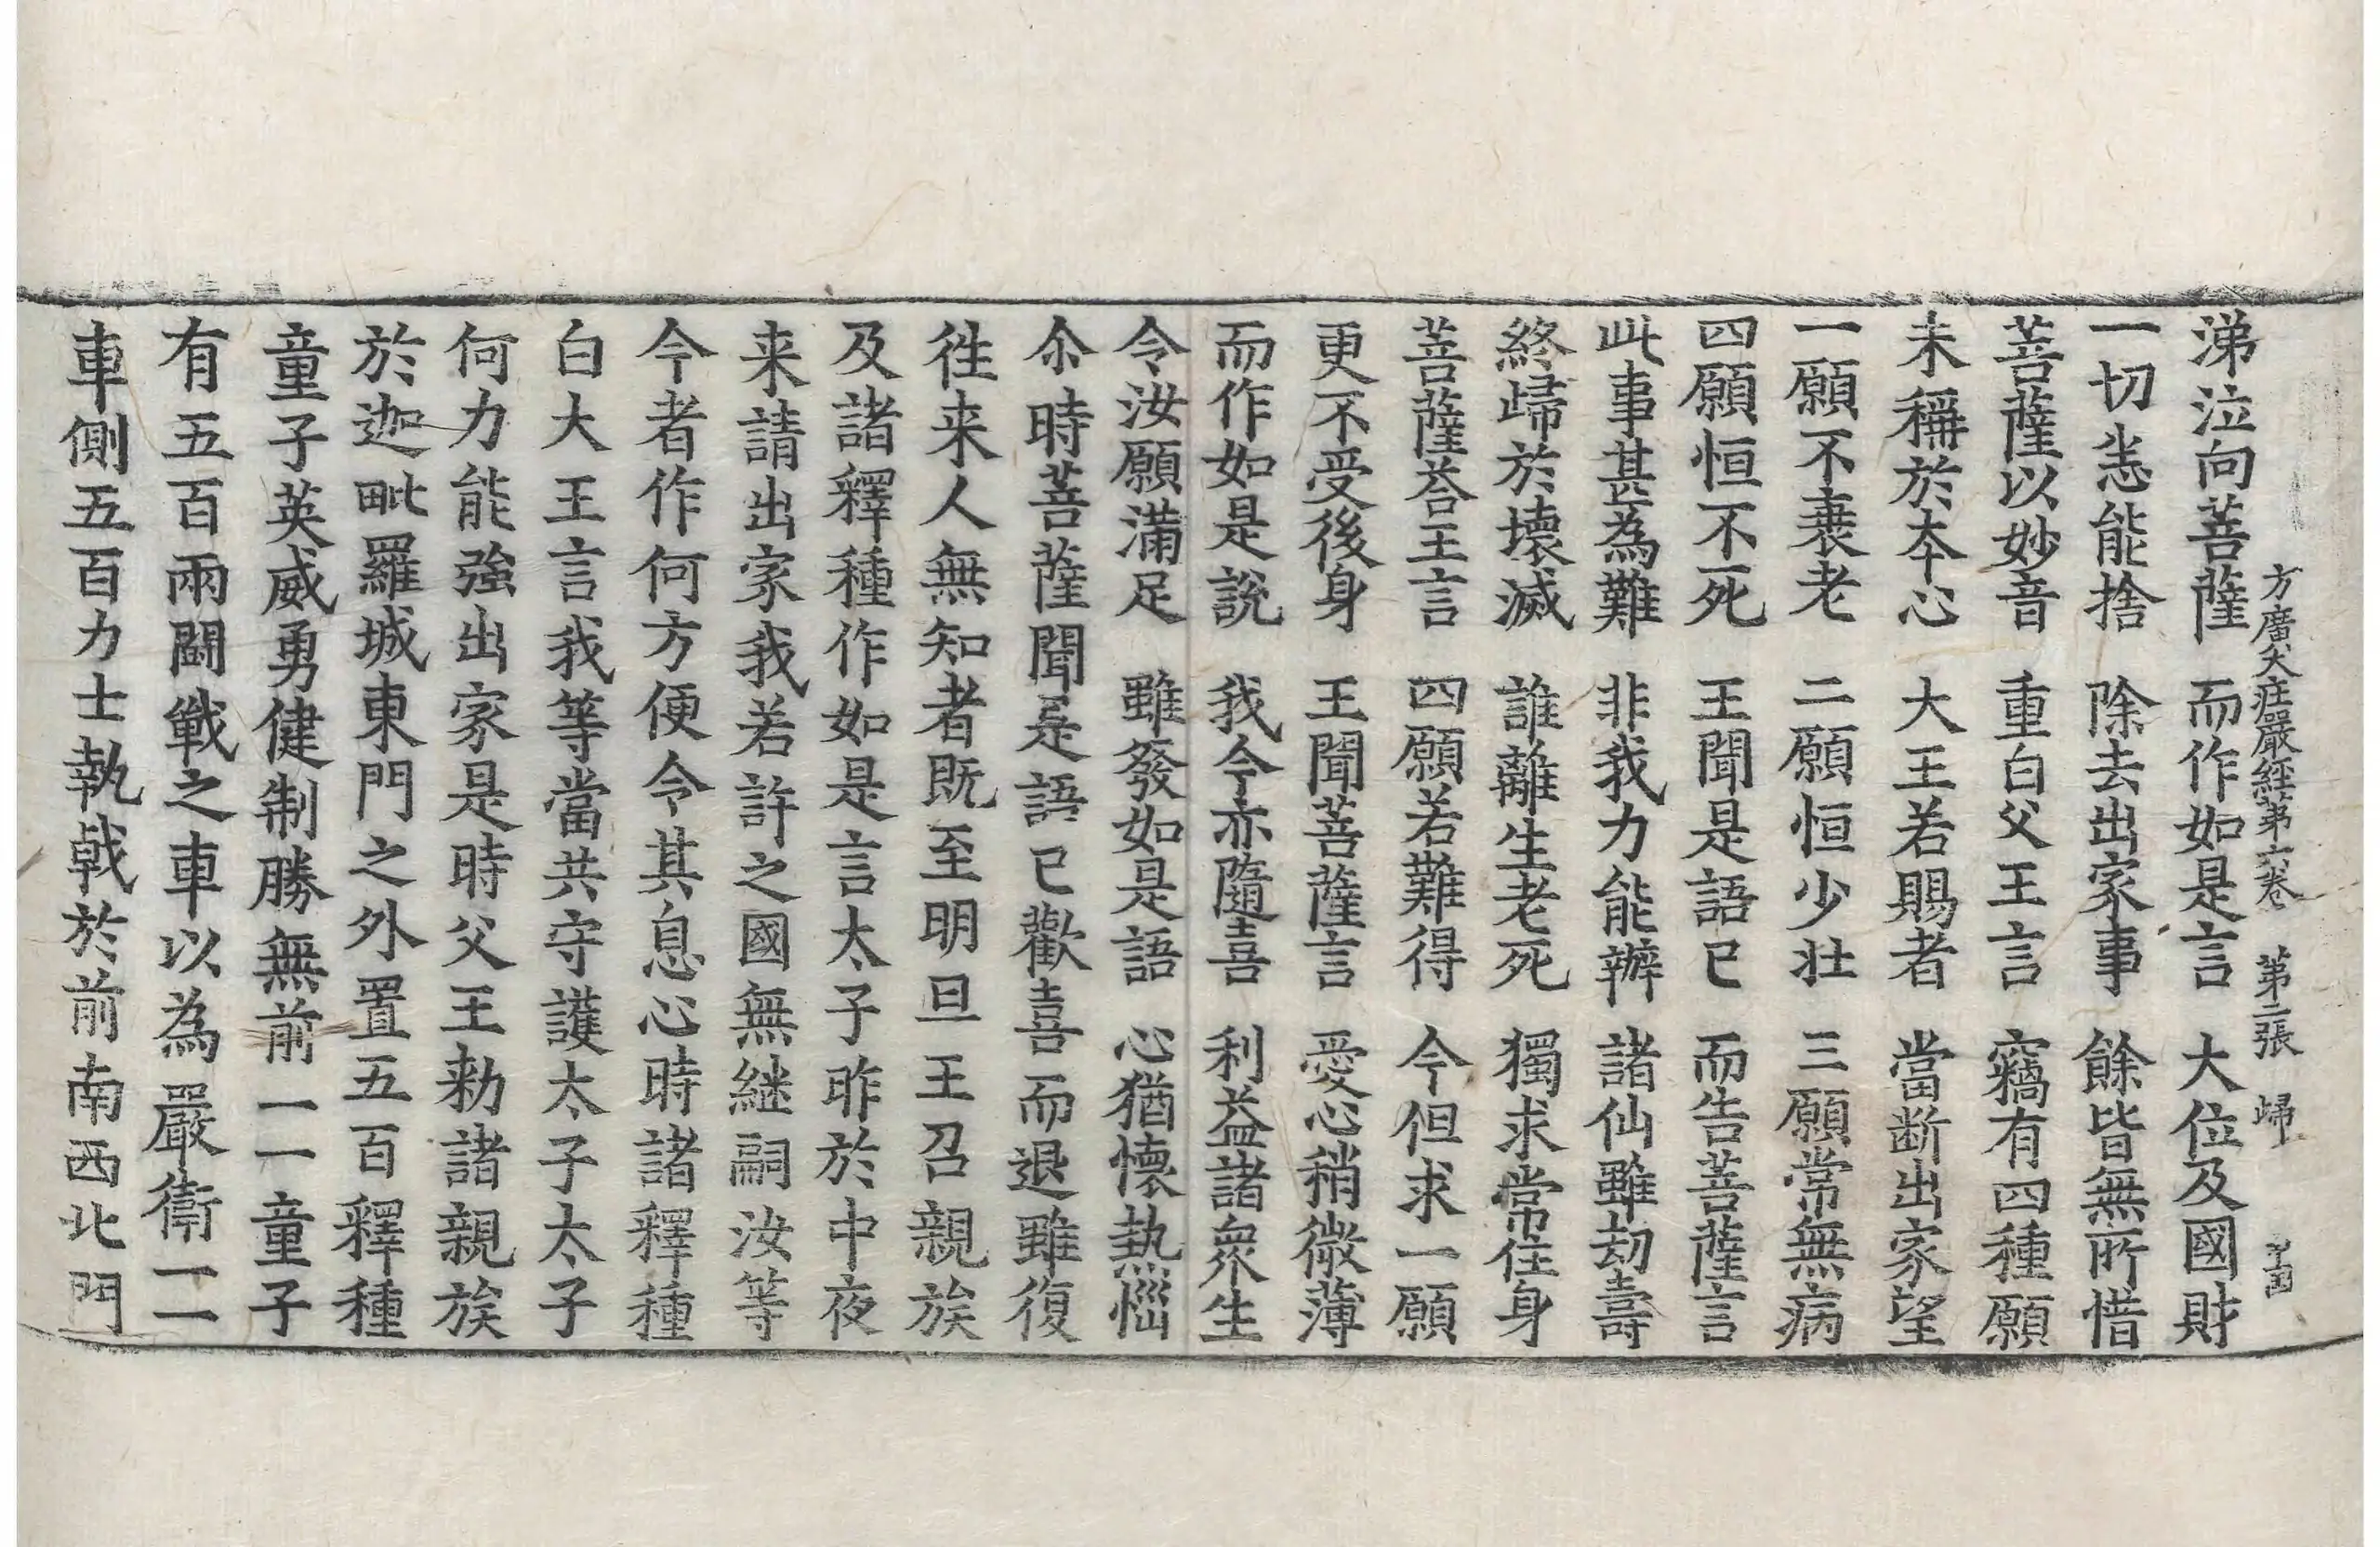 方廣大莊嚴經第六卷 第二張 歸
涕泣向菩薩 而作如是言 大位及國財
一切悉能捨 除去出家事 餘皆無所惜
菩薩以妙音 重白父王言 竊有四種願
未稱於本心 大王若賜者 當断出家望
一願不衰老 二願恒少壯 三願常無病
四願恒不死 王聞是語已 而告菩薩言
此事甚為難 非我力能辦 諸仙雖劫壽
終歸於壞滅 誰離生老死 獨求常住身
菩薩荅王言 四願若難得 今但求一願
更不受後身 王聞菩薩言 愛心稍微薄
而作如是說 我今亦隨喜 利益諸衆生
令汝願滿足 雖發如是語 心猶懷熱惱
尒時菩薩聞是語已歡喜而退雖復
徃来人無知者既至明旦王召親族
及諸釋種作如是言太子昨於中夜
来請出家我若許之國無継嗣汝等
今者作何方便令其息心時諸釋種
白大王言我等當共守護太子太子
何力能強出家是時父王勑諸親族
於迦毗羅城東門之外置五百釋種
童子英威勇健制勝無前一一童子
有五百兩鬪戰之車以為嚴衛一一
車側五百力士執戟於前南西北門